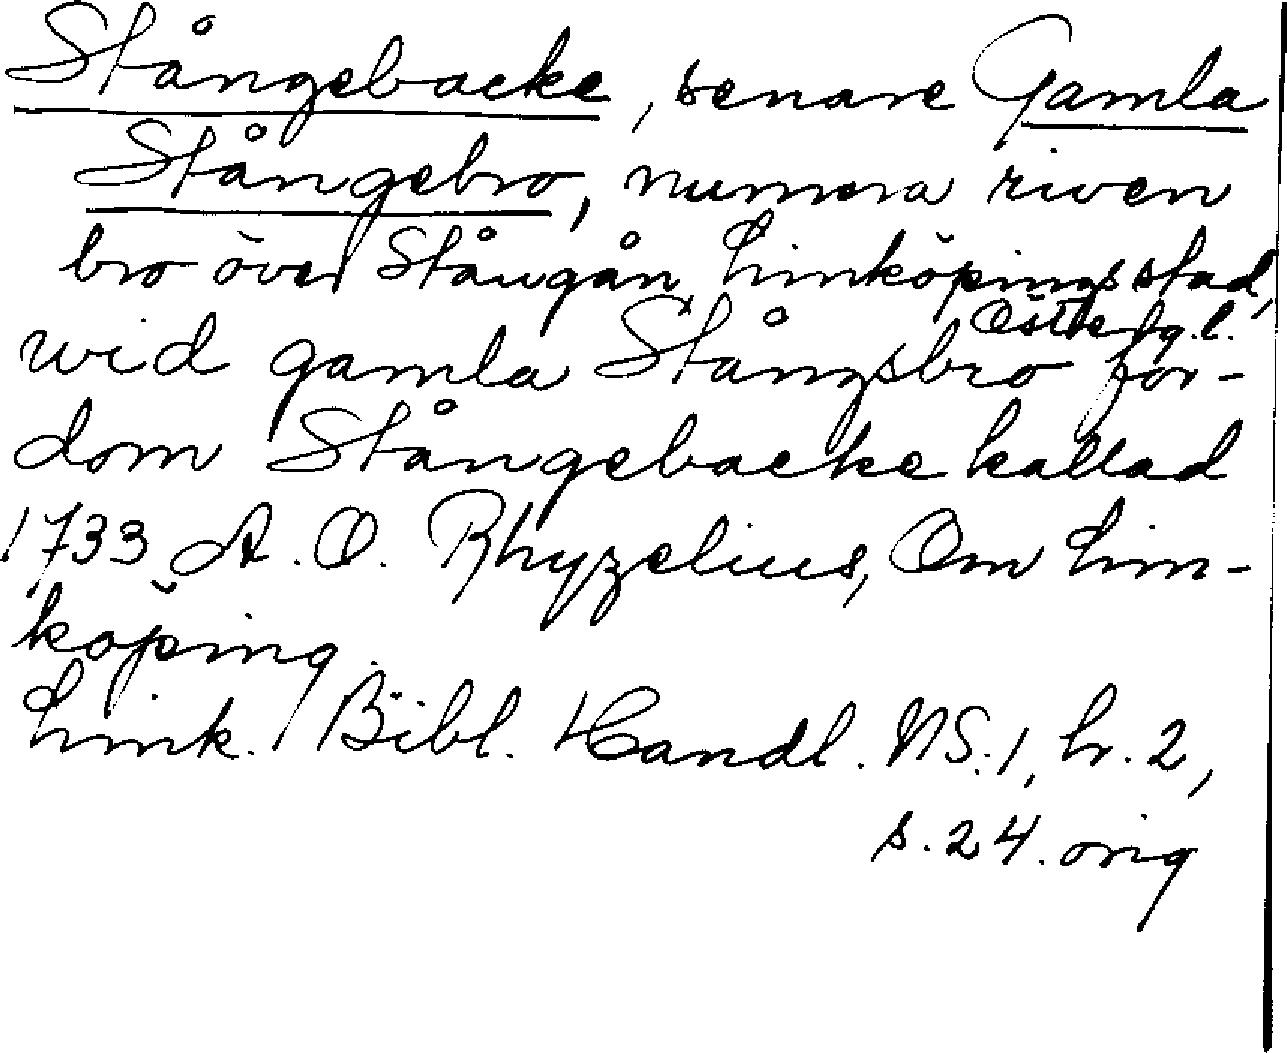 Stångebacke, senare Gamla
Stångebro, numera riven
bro över Stångån, Linköpings stad,
Österg.l.
wid gamla Stångsbro for-
dom Stångebacke kallad
1733 A. O. Rhyzelius, Om Lin-
köping.
Link. Bibl. Handl. NS. 1, h. 2,
s. 24. orig